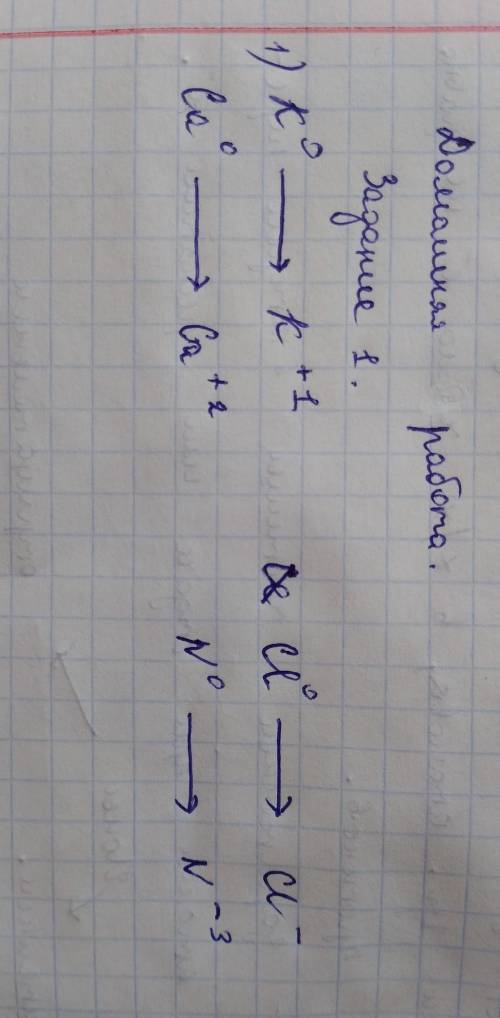 Домашняя работа.
Задание 1.
1) K⁰ → K⁺¹ Cl⁰ → Cl⁻
Ca⁰ → Ca⁺² N⁰ → N⁻³